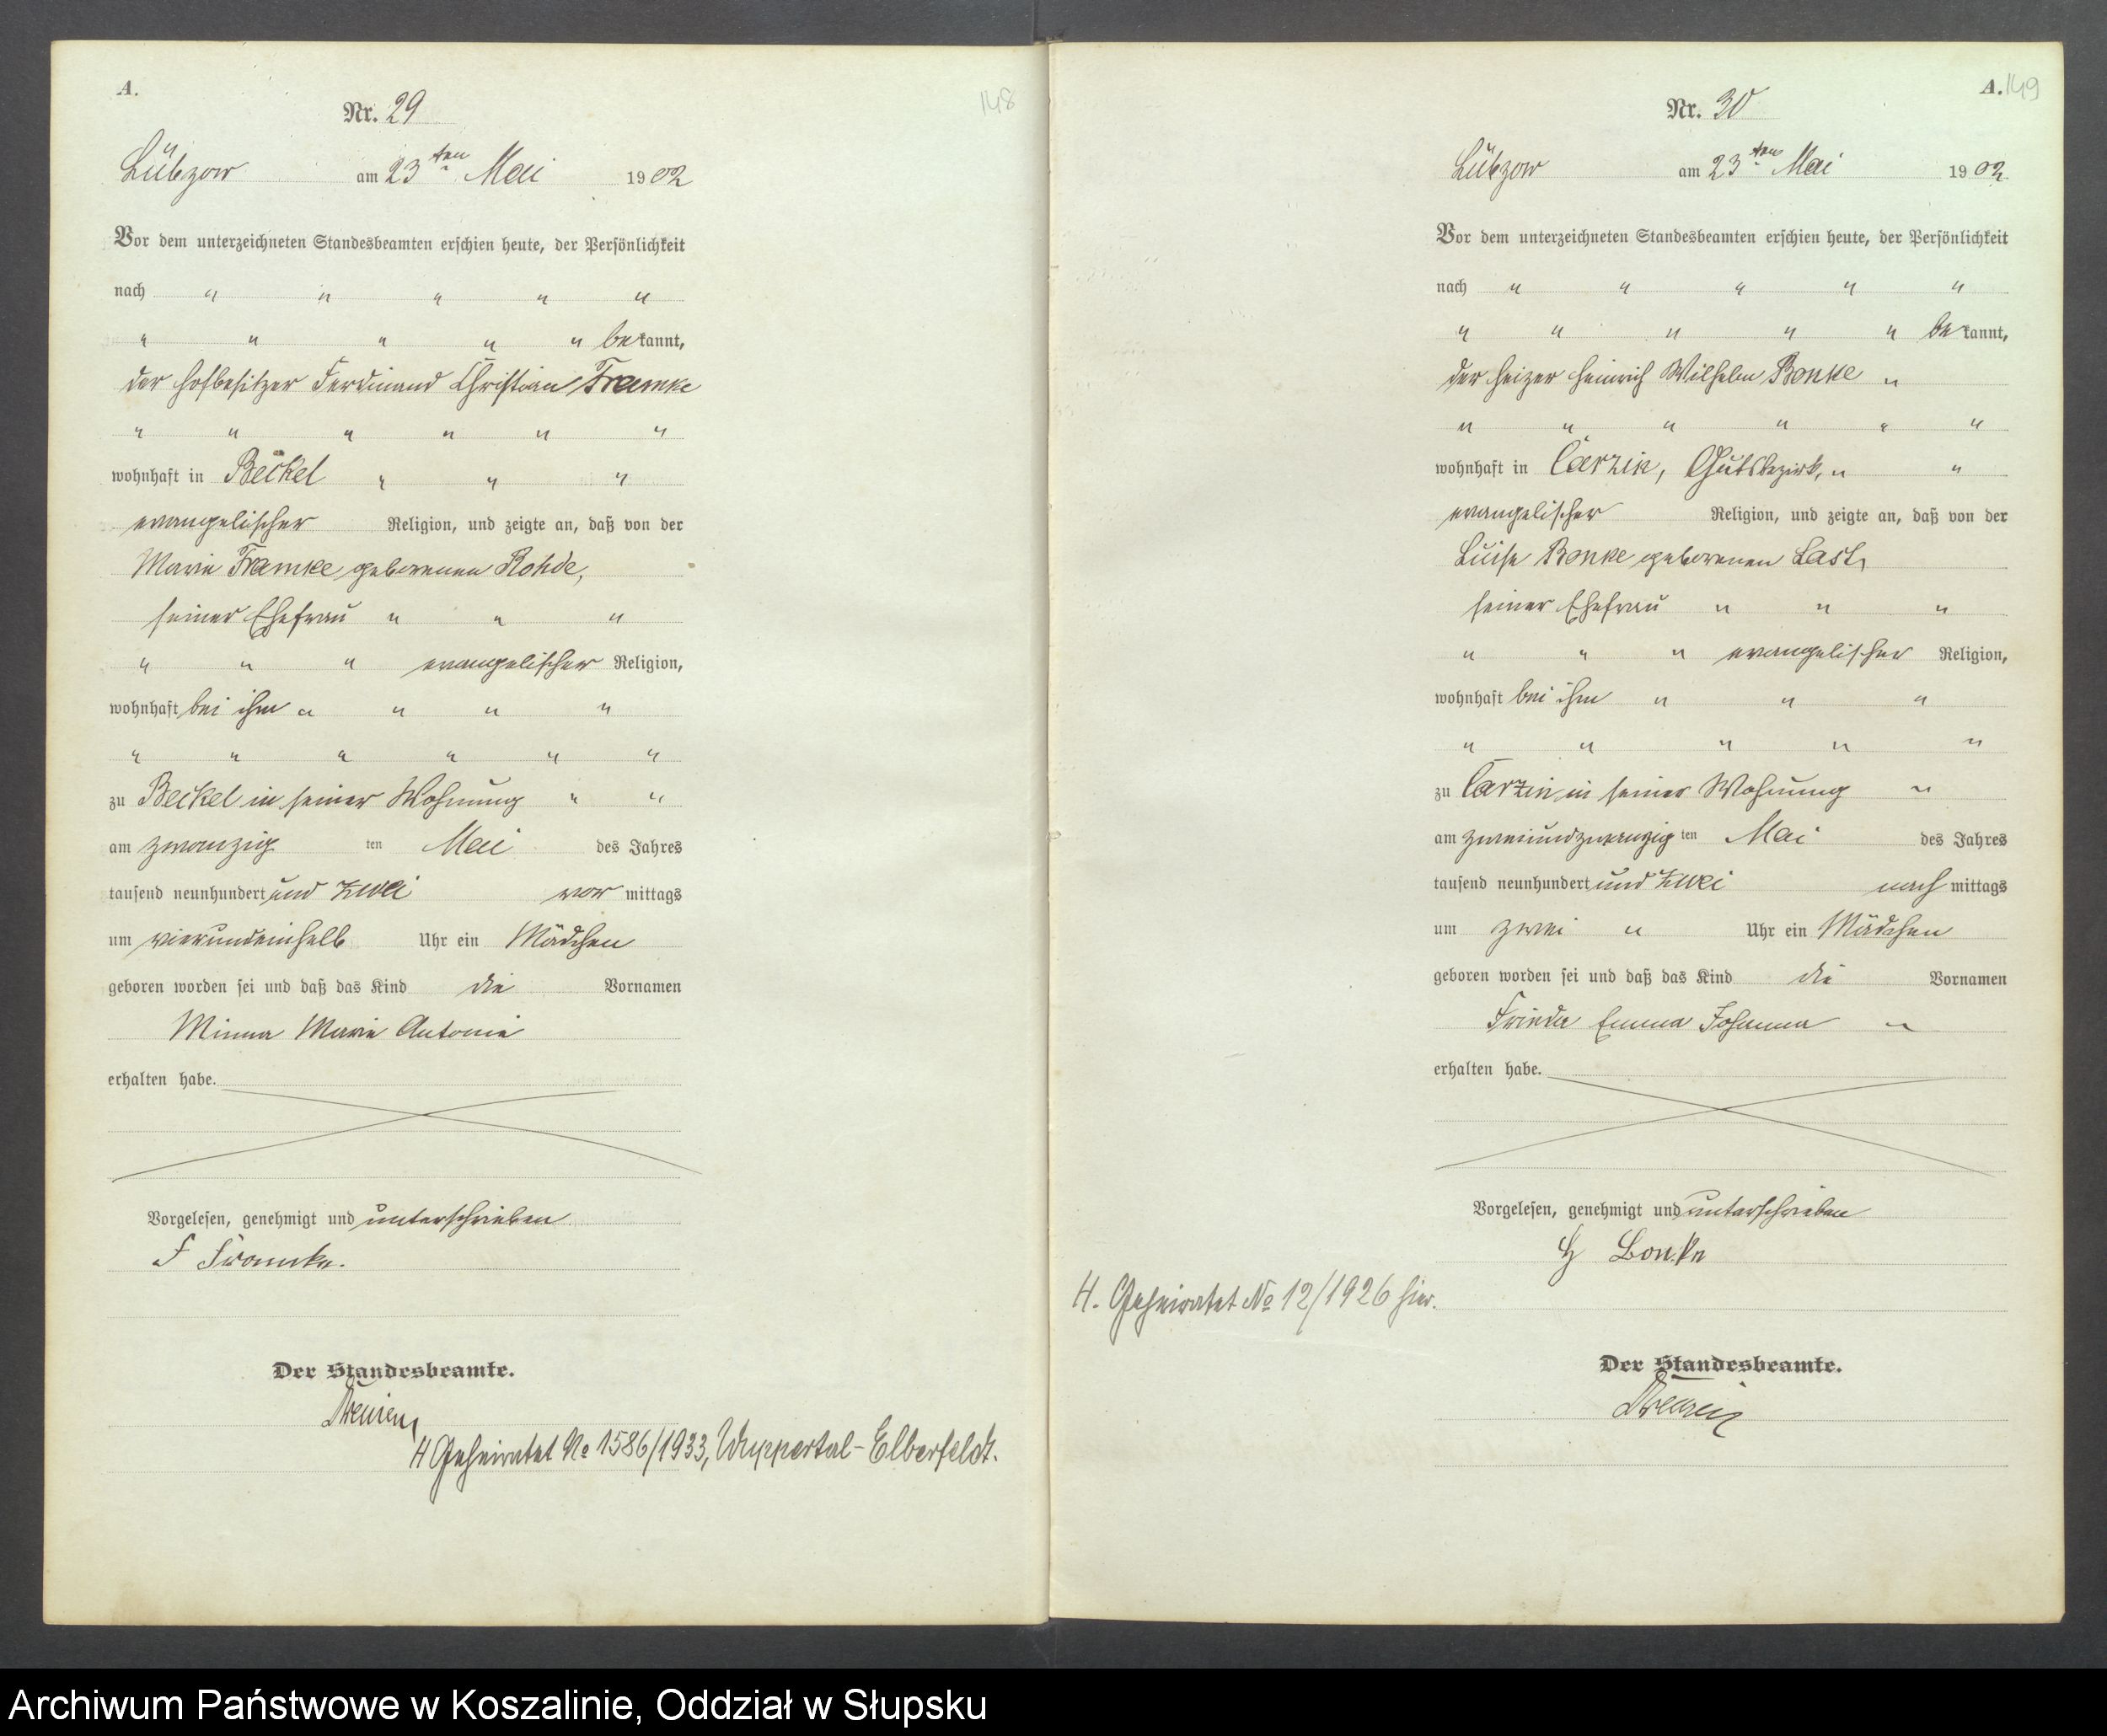 A.
148
Nr. 29
Lübzow am 23ten Mai 1902
Vor dem unterzeichneten Standesbeamten erschien heute, der Persönlichkeit
nach " " " " "
" " " " " bekannt,
der Hofbesitzer Ferdinand Christian Framke
" " " " " "
wohnhaft in Beckel " " "
evangelischer Religion, und zeigte an, daß von der
Marie Framke geborenen Rohde,
seiner Ehefrau " " "
" " " evangelischer Religion,
wohnhaft bei ihm " " " "
" " " " " "
zu Beckel in seiner Wohnung " "
am zwanzigten Mai des Jahres
tausend neunhundert und zwei vormittags
um vierundeinhalb Uhr ein Mädchen
geboren worden sei und daß das Kind die Vornamen
Minna Marie Antonie
erhalten habe.
Vorgelesen, genehmigt und unterschrieben
F Framke.
Der Standesbeamte.
H Geheiratet No 1586/1933, Wuppertal-Elberfeldt.
A. 149
Nr. 30
Lübzow am 23ten Mai 1902
Vor dem unterzeichneten Standesbeamten erschien heute, der Persönlichkeit
nach " " " " "
" " " " " bekannt,
der Heizer Heinrich Wilhelm Bonke "
" " " " " "
wohnhaft in Carzin, Gutsbezirk, " "
evangelischer Religion, und zeigte an, daß von der
Luise Bonke geborenen Last,
seiner Ehefrau " " "
" " " evangelischer Religion,
wohnhaft bei ihm " " "
" " " " "
zu Carzin in seiner Wohnung "
am zweiundzwanzigten Mai des Jahres
tausend neunhundert und zwei nachmittags
um zwei " Uhr ein Mädchen
geboren worden sei und daß das Kind die Vornamen
Frieda Emma Johanna "
erhalten habe.
Vorgelesen, genehmigt und unterschrieben
H Bonke
H. Geheiratet No 12/1926 hier.
Der Standesbeamte.
Archiwum Państwowe w Koszalinie, Oddział w Słupsku